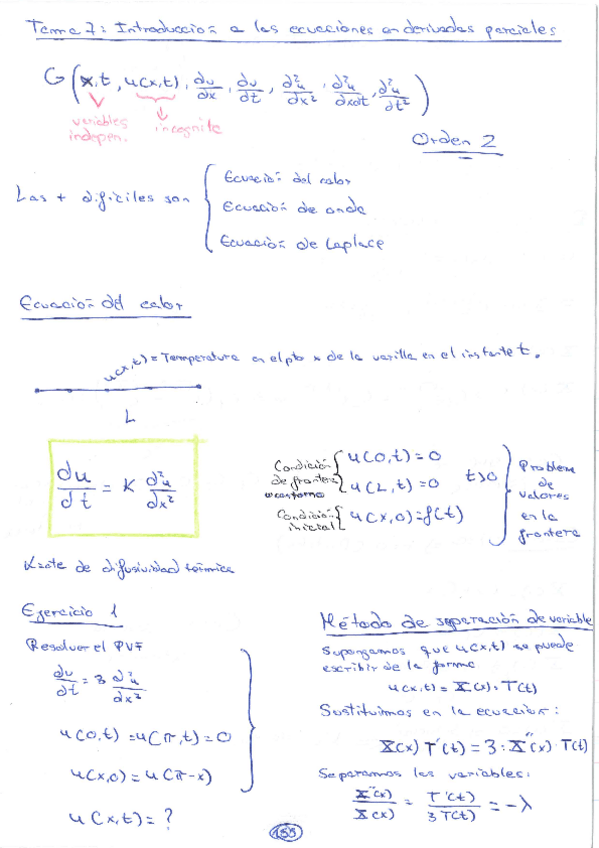 Tema 7: Introducción a las ecuaciones en derivadas parciales
G(x,t, u(x,t), du/dx, du/dt, d²u/dx², d²u/dxdt, d²u/dt²)
variables indepen.
incognita
Orden 2
Las + dificiles son
Ecuación del calor
Ecuación de onda
Ecuación de Laplace
Ecuación del calor
u(x,t) = Temperatura en el pto x de la varilla en el instante t.
L
du/dt = K d²u/dx²
Condición de frontera o contorno
u(0,t) = 0
u(L,t) = 0
t>0
Condición inicial
u(x,0) = f(t)
Problem de valores en la frontera
K=cte de difusividad térmica
Ejercicio 1
Resolver el PVF
du/dt = 3 d²u/dx²
u(0,t) = u(π,t) = 0
u(x,0) = u(π-x)
u(x,t) = ?
Método de separación de variable
Supongamos que u(x,t) se puede
escribir de la forma
u(x,t) = X(x) · T(t)
Sustituimos en la ecuacion:
X(x) T'(t) = 3 · X''(x) · T(t)
Separamos las variables:
X''(x)/X(x) = T'(t)/3T(t) = -λ
155